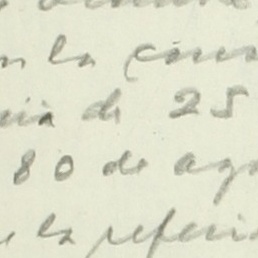 n la circu
cia de 25
80 de ago
e la referi